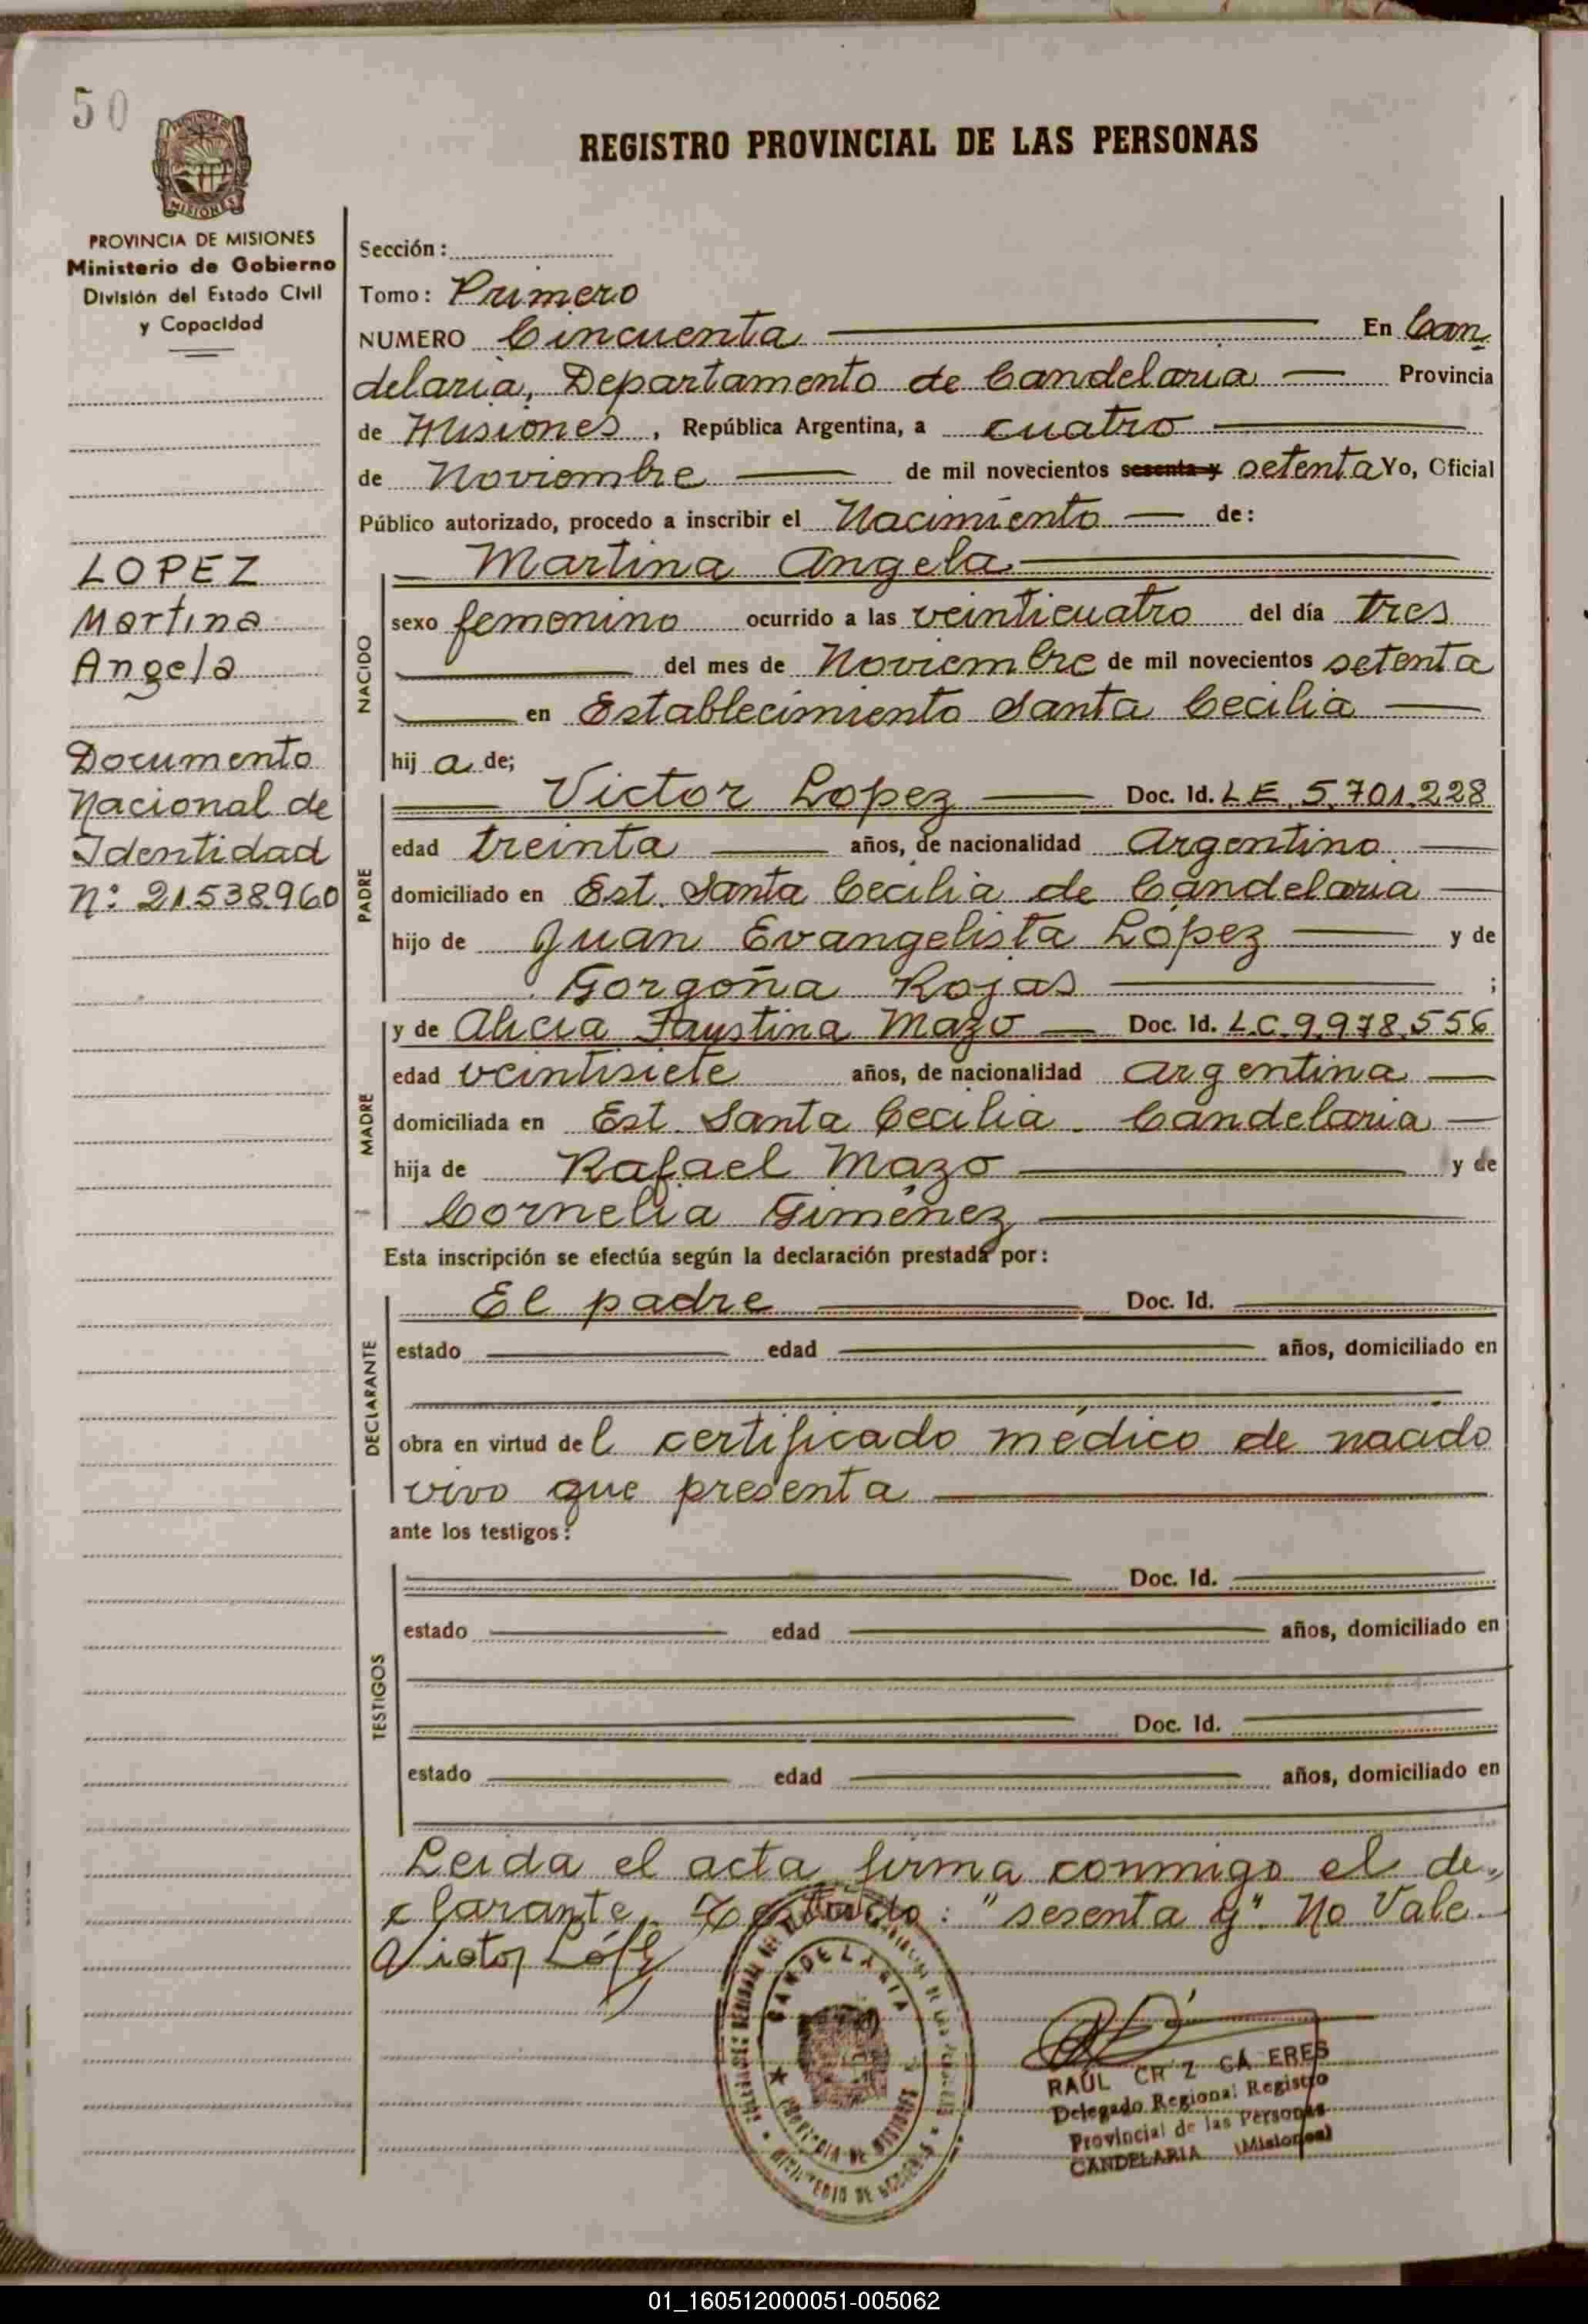 50
MISIONES
PROVINCIA DE MISIONES
Ministerio de Gobierno
División del Estado Civil
y Capacidad
LOPEZ
Martina
Angela
Documento
Nacional de
Identidad
Nº: 21.538.960
REGISTRO PROVINCIAL DE LAS PERSONAS
Sección:
Tomo: Primero
NUMERO Cincuenta En Can
delaria, Departamento de Candelaria Provincia
de Misiones, República Argentina, a cuatro
de Noviembre de mil novecientos sesenta y setenta Yo, Oficial
Público autorizado, procedo a inscribir el Nacimiento de:
Martina Angela
NACIDO
sexo femenino ocurrido a las veinticuatro del día tres
del mes de Noviembre de mil novecientos setenta
en Establecimiento Santa Cecilia
hij a de;
PADRE
Victor Lopez Doc. Id. LE. 5.701.228
edad treinta años, de nacionalidad Argentino
domiciliado en Est. Santa Cecilia de Candelaria
hijo de Juan Evangelista López y de
Gorgoña Rojas ;
MADRE
y de Alicia Faustina Mazo Doc. Id. L.C. 9.978.556
edad veintisiete años, de nacionalidad argentina
domiciliada en Est. Santa Cecilia. Candelaria
hija de Rafael Mazo y de
Cornelia Gimenez
Esta inscripción se efectúa según la declaración prestada por:
DECLARANTE
El padre Doc. Id.
estado edad años, domiciliado en
obra en virtud de l certificado médico de nacido
vivo que presenta
ante los testigos:
TESTIGOS
Doc. Id.
estado edad años, domiciliado en
Doc. Id.
estado edad años, domiciliado en
Leida el acta firma conmigo el de
clarante. Testado: "sesenta y". No Vale.
Victor López
CANDELARIA
PROVINCIA DE MISIONES
MINISTERIO DE GOBIERNO
RAUL CR Z CA ERES
Delegado Regional Registro
Provincial de las Personas
CANDELARIA (Misiones)
01_160512000051-005062